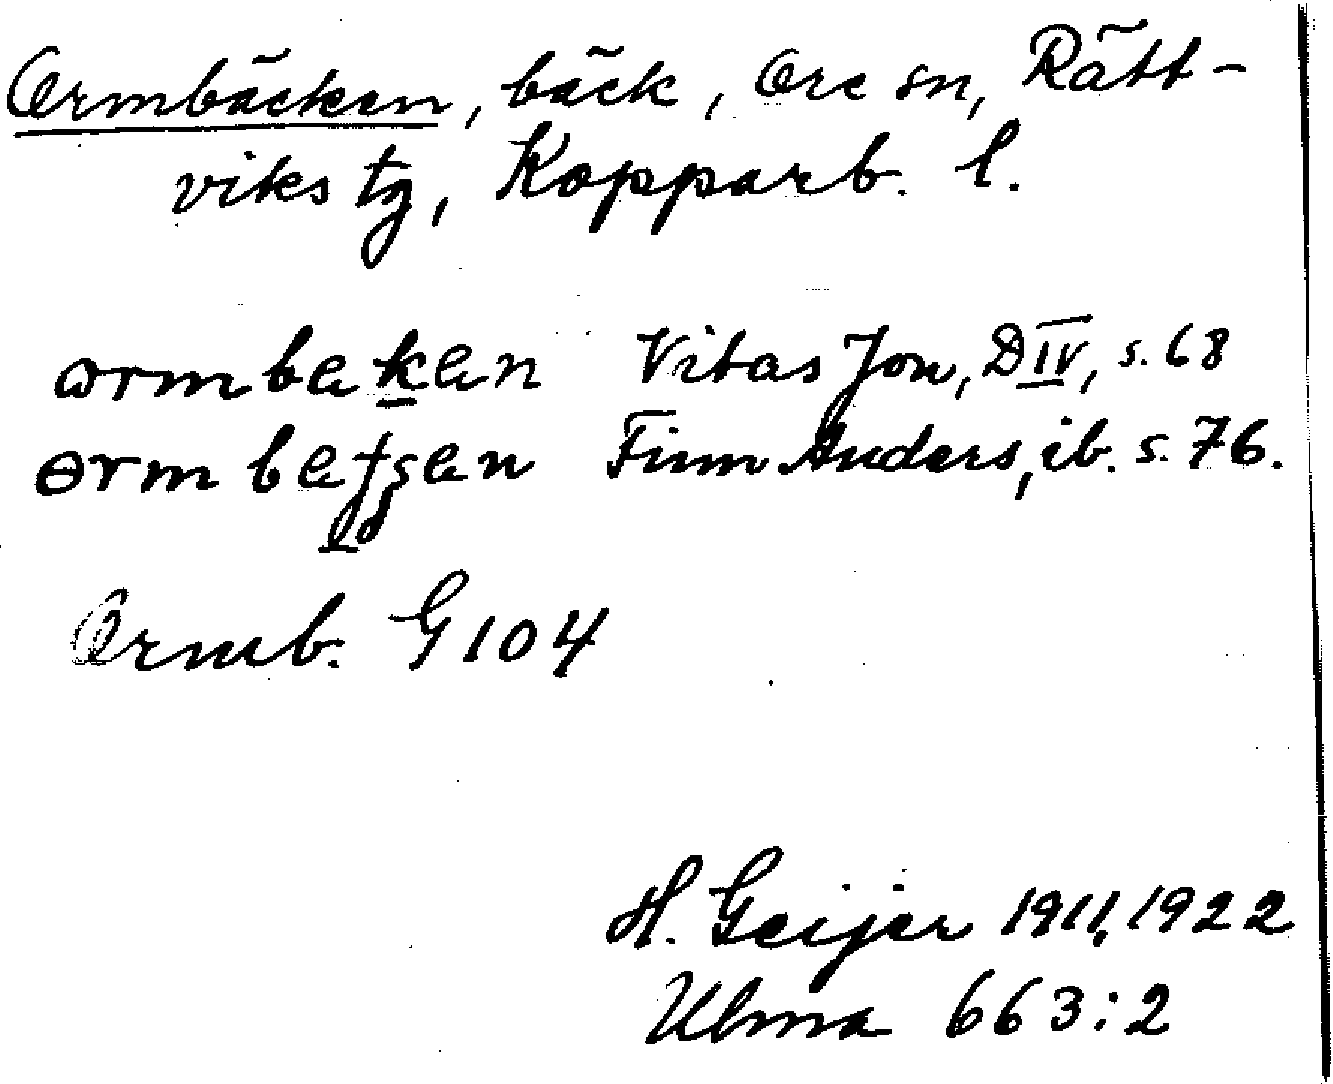 Ormbäcken, bäck, Ore sn, Rätt-
viks tg, Kopparb. l.
Vitas Jon, D IV, s. 68
Finn Anders, ib. s. 76.
Ormb. G 104
H. Geijer 1911, 1922
Ulma 663:2